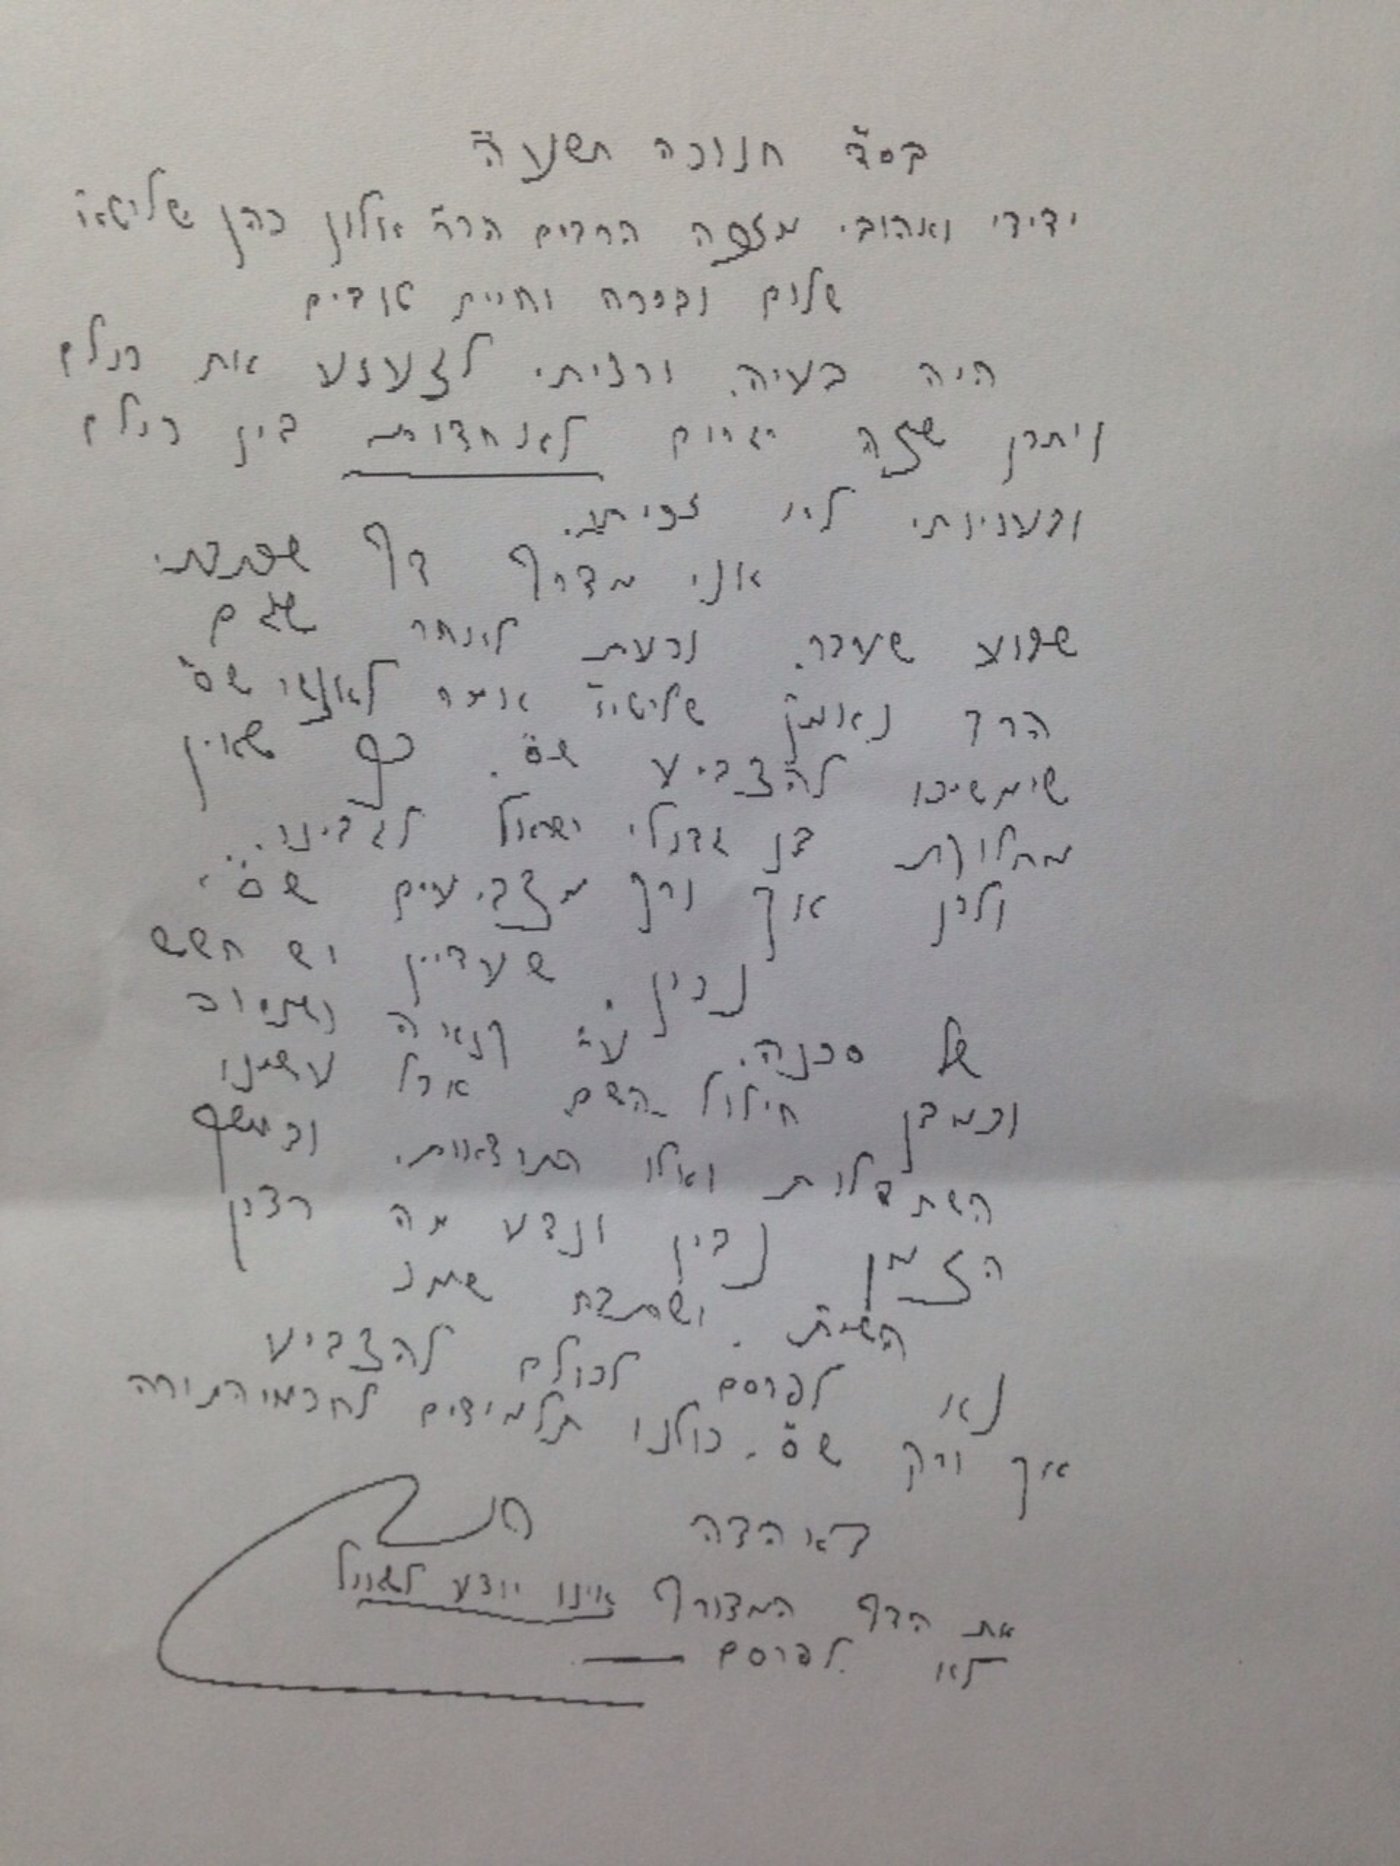 בס״ד חנוכה תשע״ה
ידידי ואהובי מזכה הרבים הר״ר אלון כהן שליט״א
שלום וברכה וחיים טובים
היה בעיה ורציתי לזעזע את כולם
ויתכן שזה יגרום לאחדות בין כולם
ובעניותי לא זכיתי.
אני מצרף דף שכתבתי
שבוע שעבר. וכעת לאחר שגם
הרב נאמ״ן שליט״א אומר לאנשי ש״ס
שימשיכו להצביע ש״ס. כך שאין
מחלוקת בין גדולי ישראל לגבינו..
ולכן אך ורק מצביעים ש״ס.
נכון. שעדיין יש חשש
של סכנה. ע״י קנאי ה
וכמובן חילול השם אבל עשינו
השתדלות ואלו התוצאות. ובמשך
הזמן נבין ונדע מה רצון
השי״ת. ישתבח שמו
נא לפרסם לכולם להצביע
אך ורק ש״ס. כולנו תלמידים לחכמי התורה
באהבה
את הדף המצורף אינו יודע לשאול
לא לפרסם